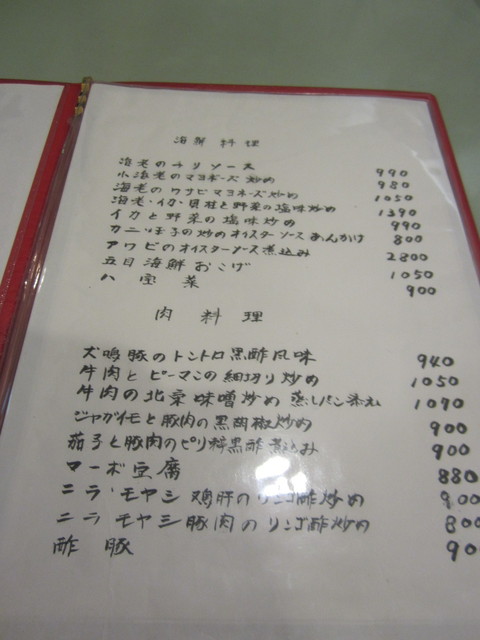 海鮮料理
海老のチリソース 990
小海老のマヨネーズ炒め 980
海老のワサビマヨネーズ炒め 1050
海老・イカ・貝柱と野菜の塩味炒め 1390
イカと野菜の塩味炒め 990
カニ玉子の炒めオイスターソースあんかけ 800
アワビのオイスターソース煮込み 2800
五目海鮮おこげ 1050
八宝菜 900
肉料理
犬鳴豚のトントロ黒酢風味 940
牛肉とピーマンの細切り炒め 1050
牛肉の北京味噌炒め 蒸しパン添え 1090
ジャガイモと豚肉の黒胡椒炒め 900
茄子と豚肉のピリ辛黒酢煮込み 900
マーボ豆腐 880
ニラ・モヤシ鶏肝のリンゴ酢炒め 900
ニラ・モヤシ豚肉のリンゴ酢炒め 800
酢豚 90